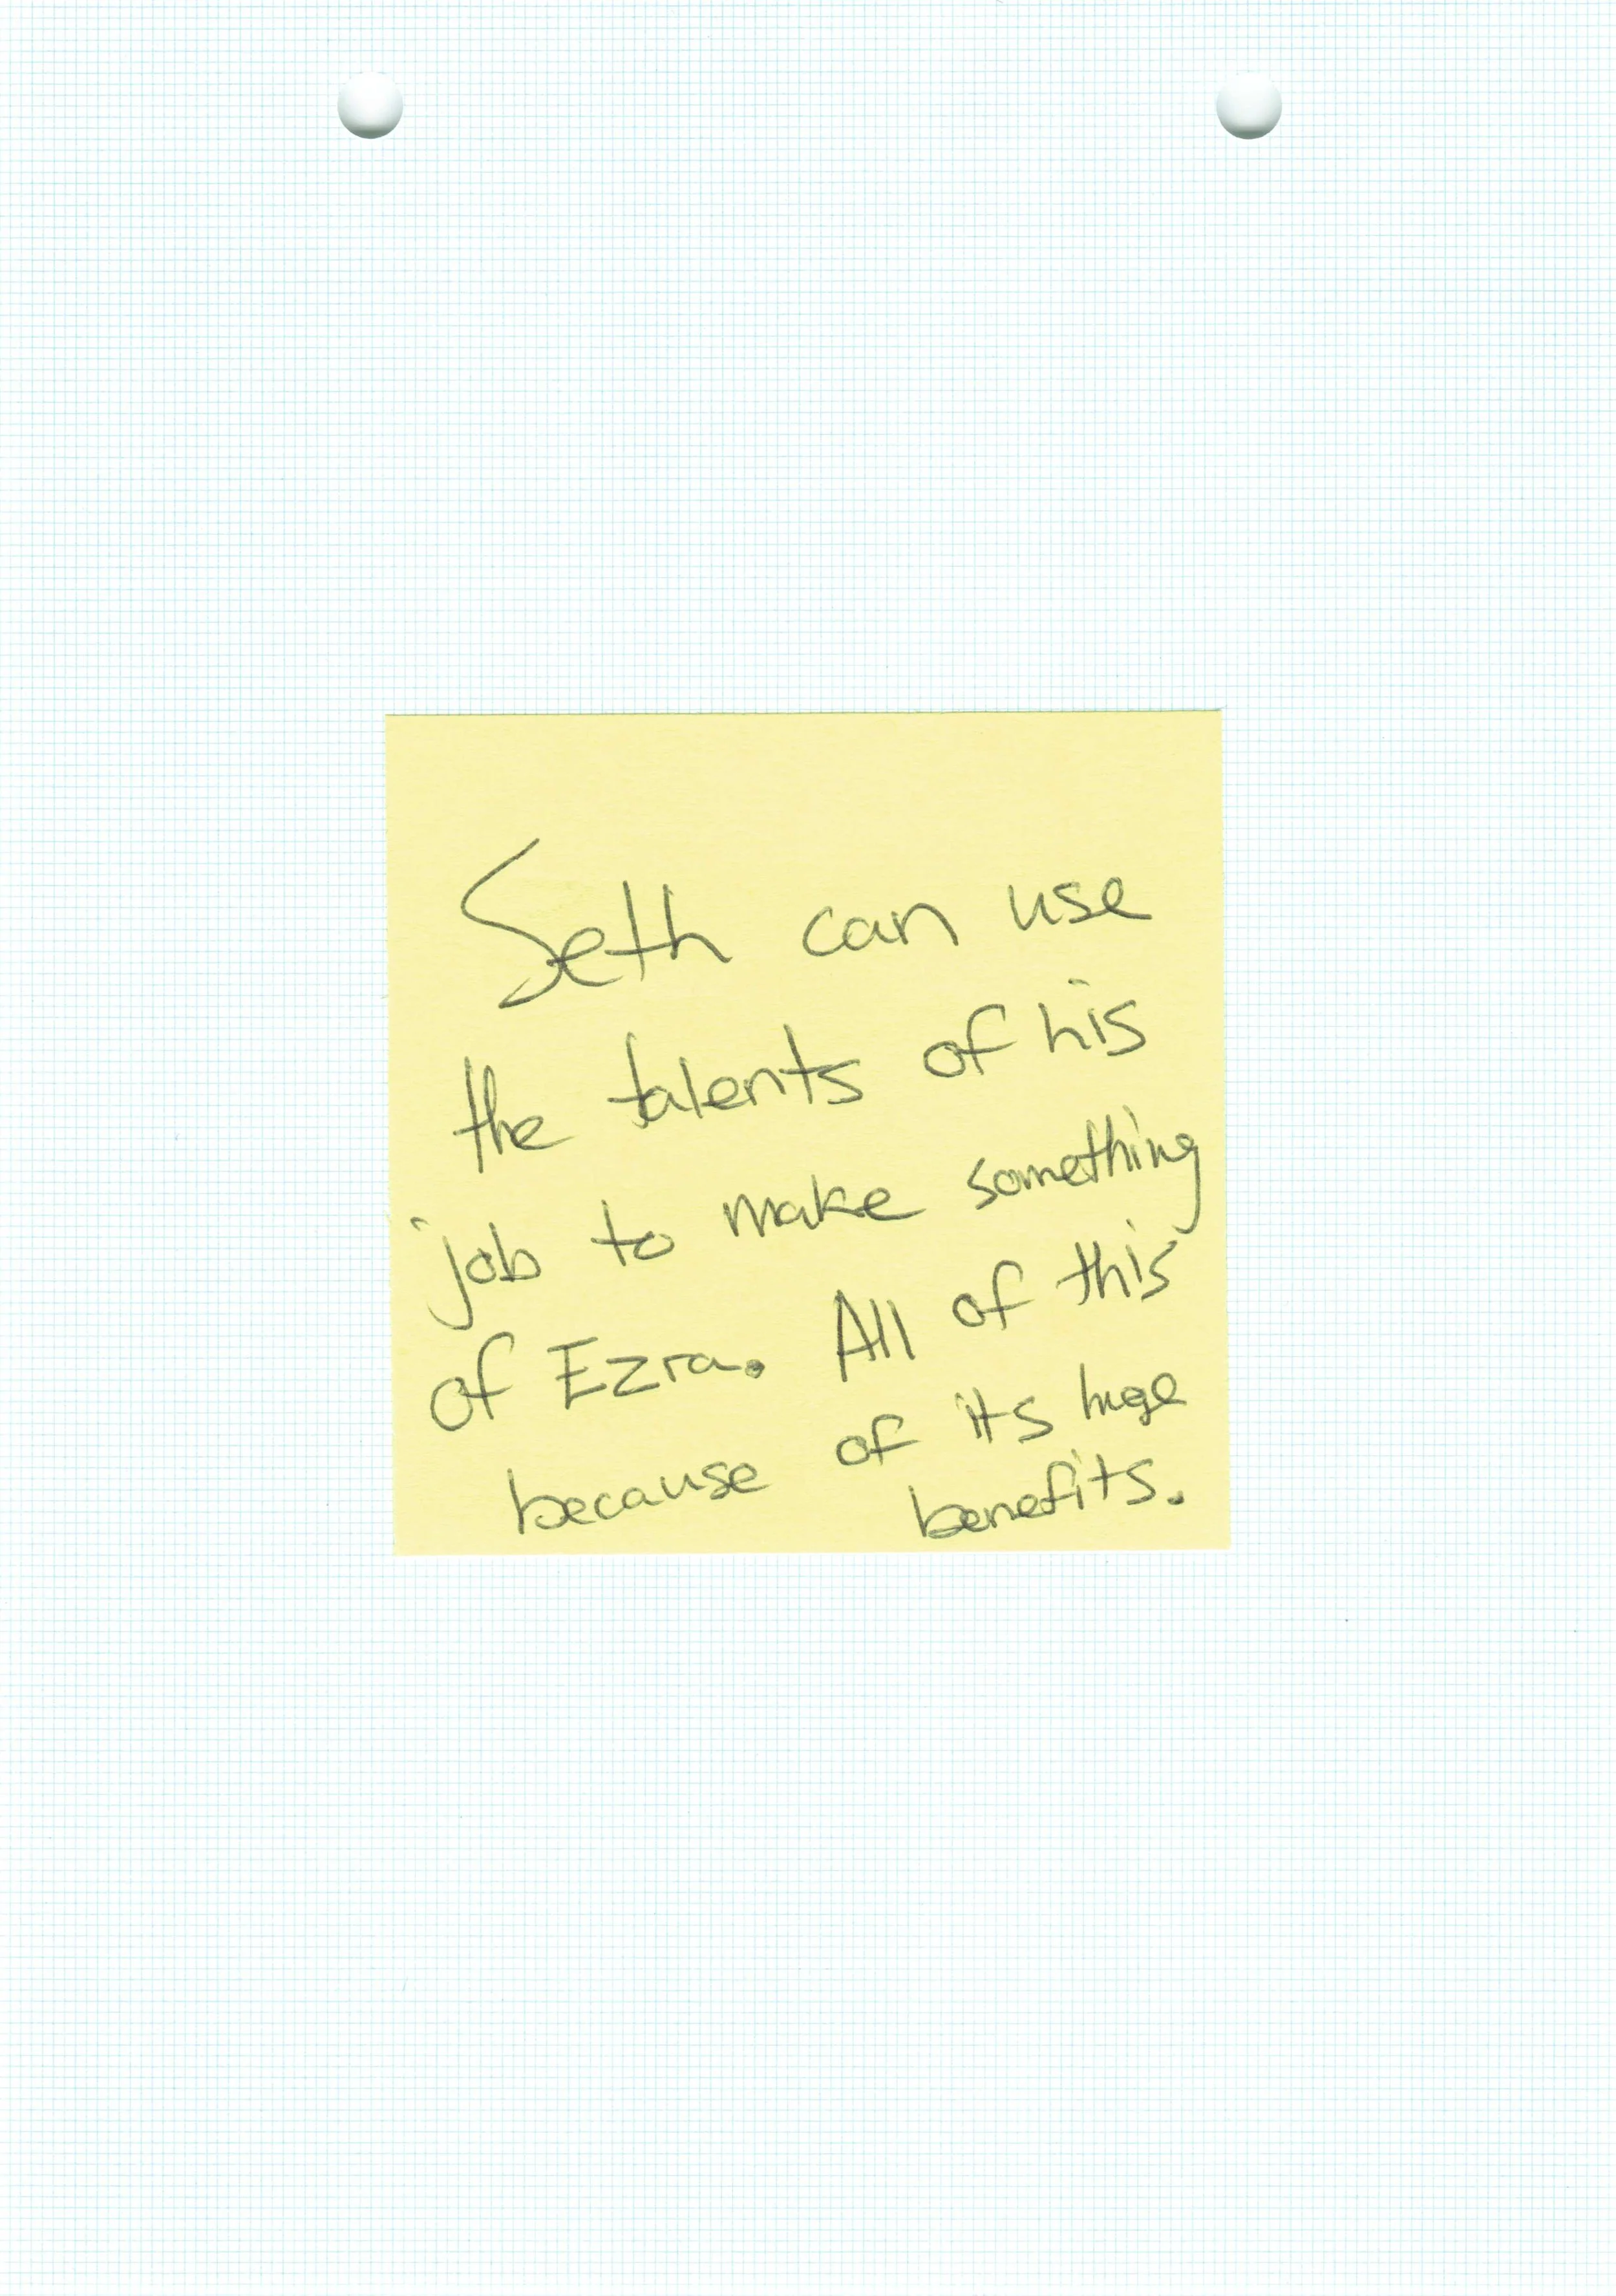 Seth can use
the talents of his
job to make something
of Ezra. All of this
because of its huge
benefits.